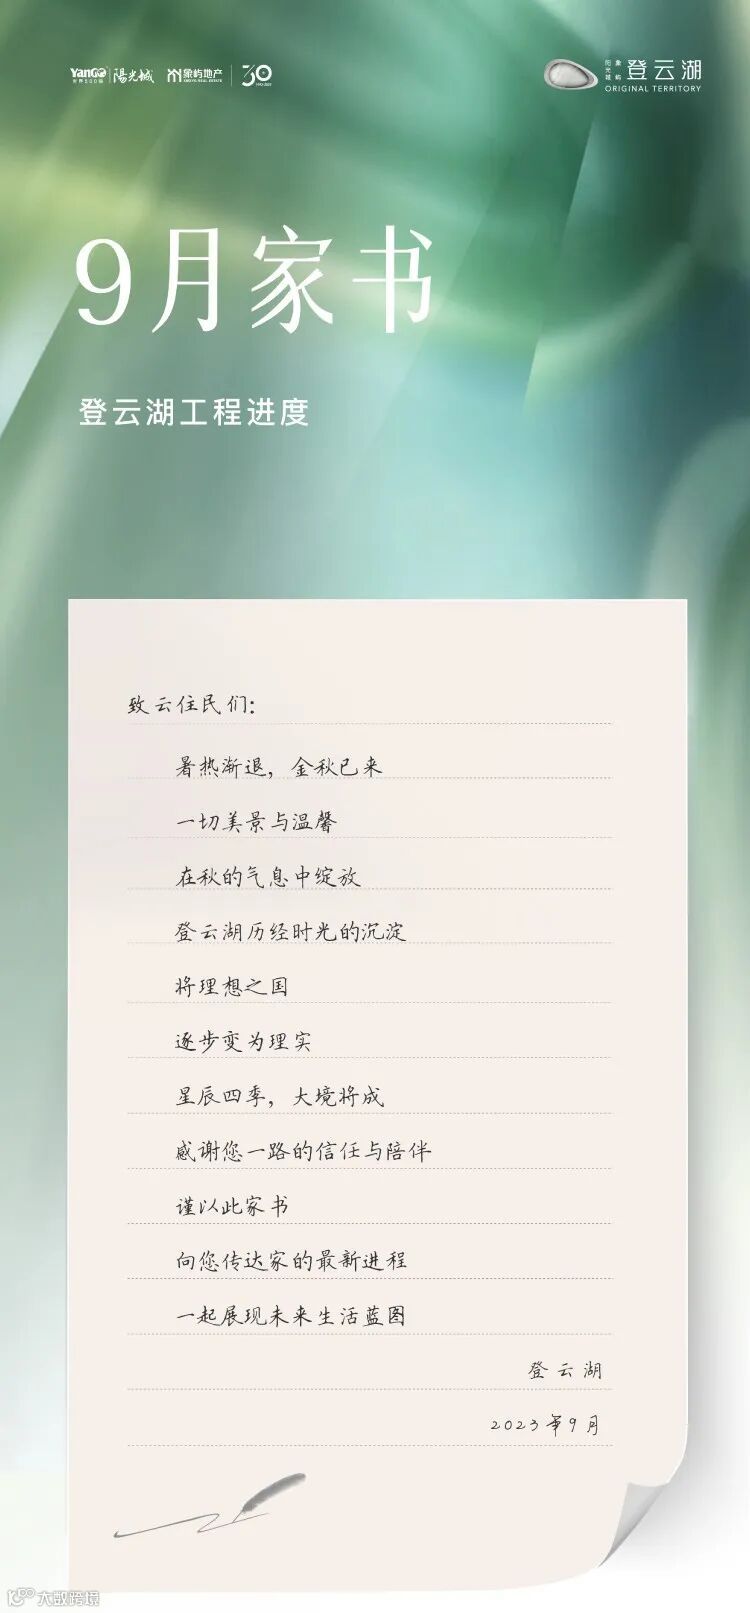 YanGo 世界500强 陽光城 象屿地产 XIANGYU REAL ESTATE 30
阳光城 象屿 登云湖
ORIGINAL TERRITORY
9月家书
登云湖工程进度
致云住民们:
暑热渐退，金秋已来
一切美景与温馨
在秋的气息中绽放
登云湖历经时光的沉淀
将理想之国
逐步变为理实
星辰四季，大境将成
感谢您一路的信任与陪伴
谨以此家书
向您传达家的最新进程
一起展现未来生活蓝图
登云湖
2023年9月
大数跨境